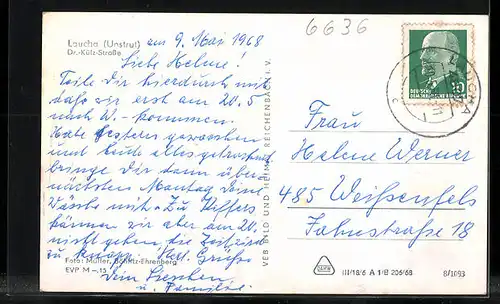 6636
Laucha (Unstrut) am 9. Mai 1968
Dr.-Külz-Straße
Liebe Helene!
Teile Dir hierdurch mit
daß wir erst am 20.5
nach W. kommen.
Habe gestern gewaschen
und heute alles getrocknet
bringe Dir dann über-
nächsten Montag Deine
Wäsche mit. Zu
können wir aber am 20.
nicht gehen die Zeit wird
zu knapp. Herzl. Grüße
Dein
u. Familie.
Foto: Müller, Böhlitz-Ehrenberg
EVP M –.15
VEB BILD UND HEIMAT REICHENBACH I. V.
DEUTSCHE
DEMOKRATISCHE REPUBLIK
10
LAUCHA
Frau
Helene Werner
485 Weißenfels
Jahnstraße 18
III/18/6 A 1/B 206/68
8/1093